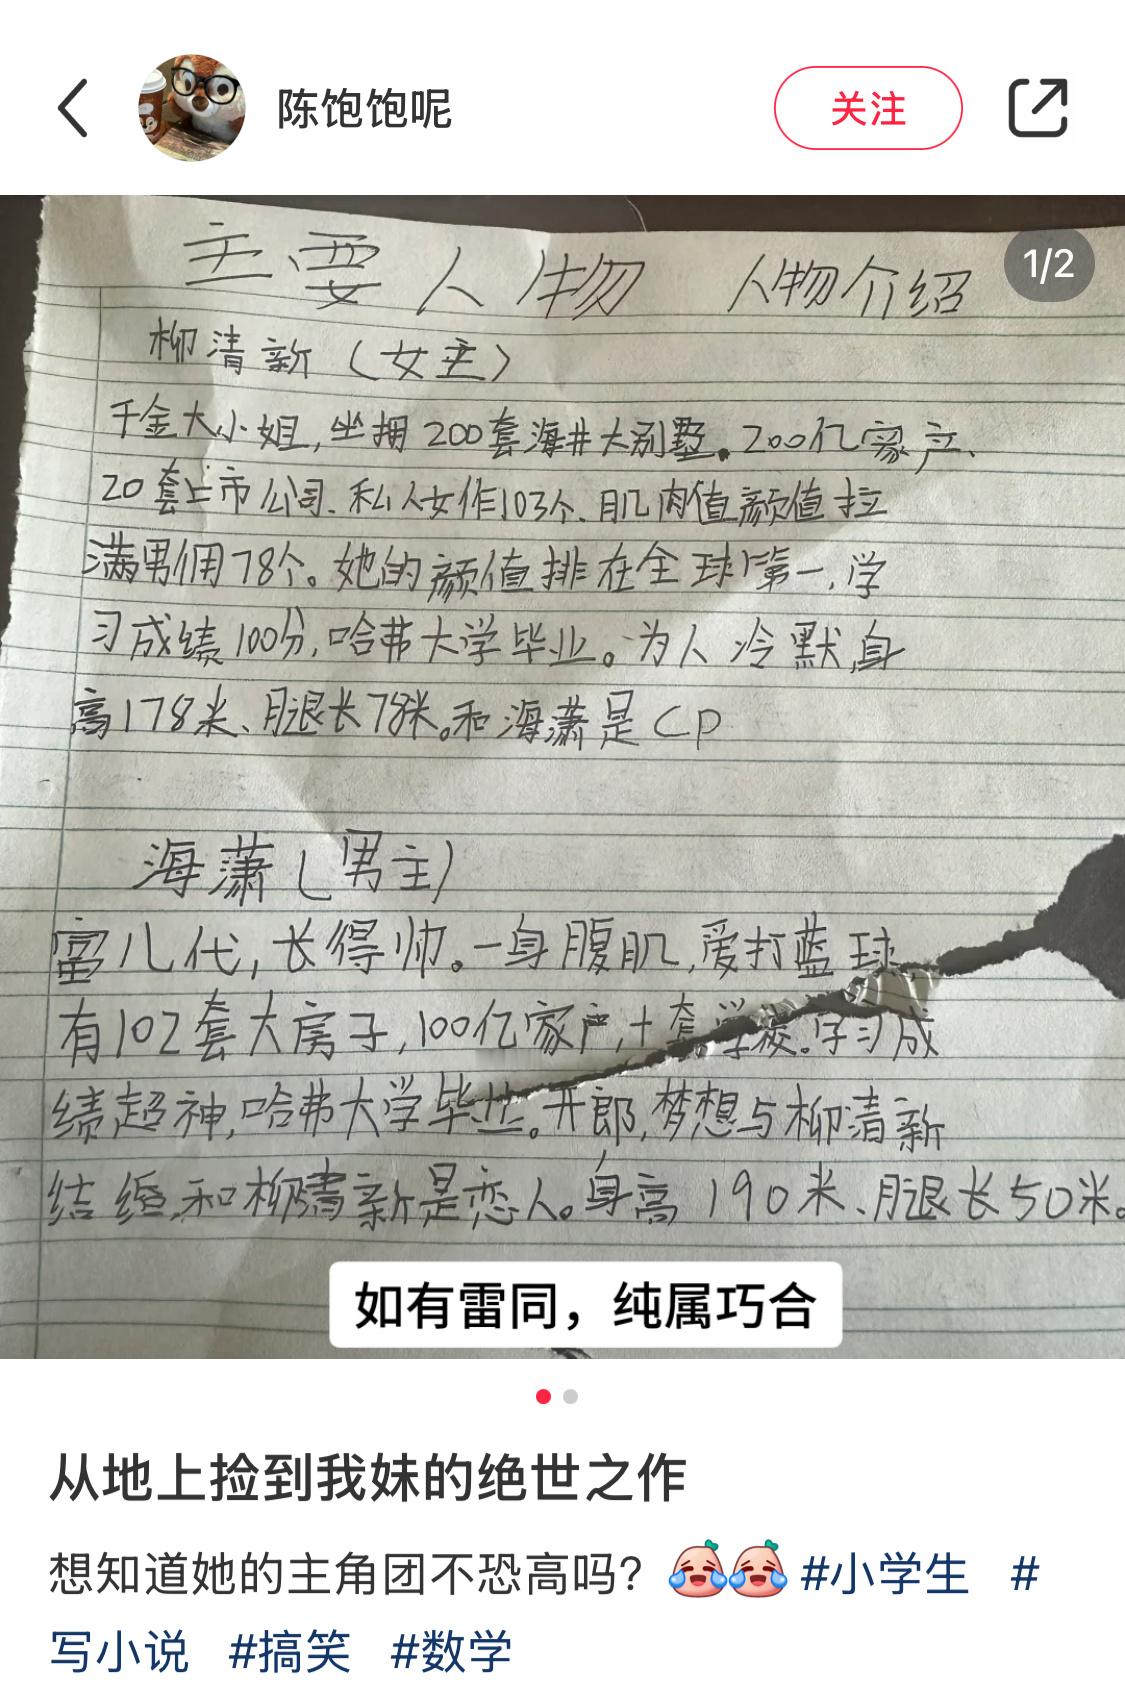 陈饱饱呢
关注
1/2
主要人物 人物介绍
柳清新（女主）
千金大小姐，坐拥200套海井大别墅。200亿家产、
20套上市公司、私人女作103个、肌肉值颜值拉
满男佣78个。她的颜值排在全球第一，学
习成绩100分，哈弗大学毕业。为人冷默，身
高178米、腿长78米。和海潇是CP
海潇（男主）
富儿代，长得帅。一身腹肌，爱打蓝球
有102套大房子，100亿家产，十套学校。学习成
绩超神，哈弗大学毕业。开郎，梦想与柳清新
结婚，和柳清新是恋人。身高190米、腿长50米。
如有雷同，纯属巧合
从地上捡到我妹的绝世之作
想知道她的主角团不恐高吗？ #小学生 #
写小说 #搞笑 #数学